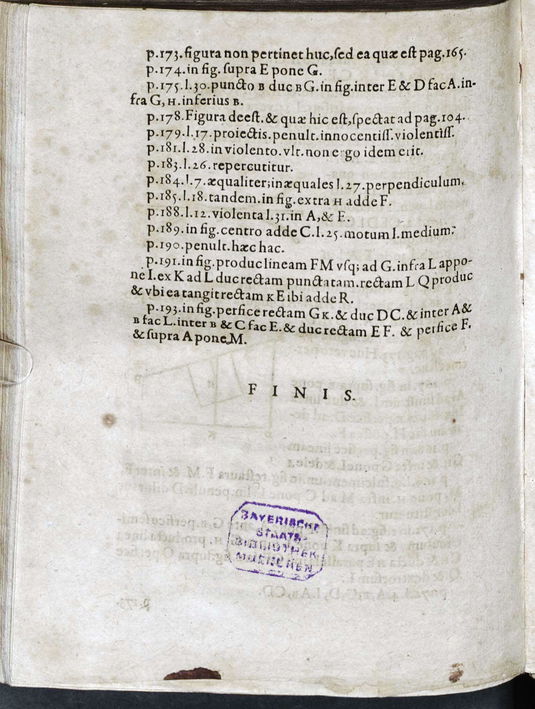 p.173.figura non pertinet huc,sed ea quæ est pag.165.
p.174.in fig. supra E pone G.
p.175.l.30.puncto B duc BG.in fig.inter E & D fac A.in-
fra G, H.inferius B.
p.178.Figura deest.& quæ hic est,spectat ad pag.104.
p.179.l.17.proiectis.penult.innocentiss.violentiss.
p.181.l.28.in violento.vlt.non ergo idem erit.
p.183.l.26.repercutitur.
p.184.l.7.æqualiter;inæquales l.27.perpendiculum.
p.185.l.18.tandem.in fig.extra H adde F.
p.188.l.12.violenta l.31.in A,& E.
p.189.in fig.centro adde C.l.25.motum l.medium.
p.190.penult.hæc hac.
p.191.in fig.produc lineam FM vsq; ad G.infra L appo-
ne I.ex K ad L duc rectam punctatam.rectam L Q produc
& vbi ea tangit rectam K E ibi adde R.
p.193.in fig.perfice rectam GK.& duc DC.& inter A &
B fac L.inter B & C fac E.& duc rectam E F. & perfice F.
& supra A pone M.
F I N I S.
BAYERISCHE
STAATS-
BIBLIOTHEK
MUENCHEN